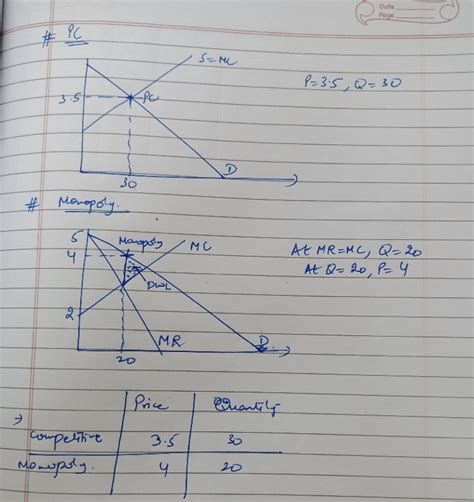 Date
Page
# PC
S=MC
P=3.5, Q=30
3.5
PC
D
30
# Monopoly.
5
Monopoly
MC
4
At MR=MC, Q=20
At Q=20, P=4
DWL
2
MR
D
20
Price Quantity
→
Competitive 3.5 30
Monopoly. 4 20